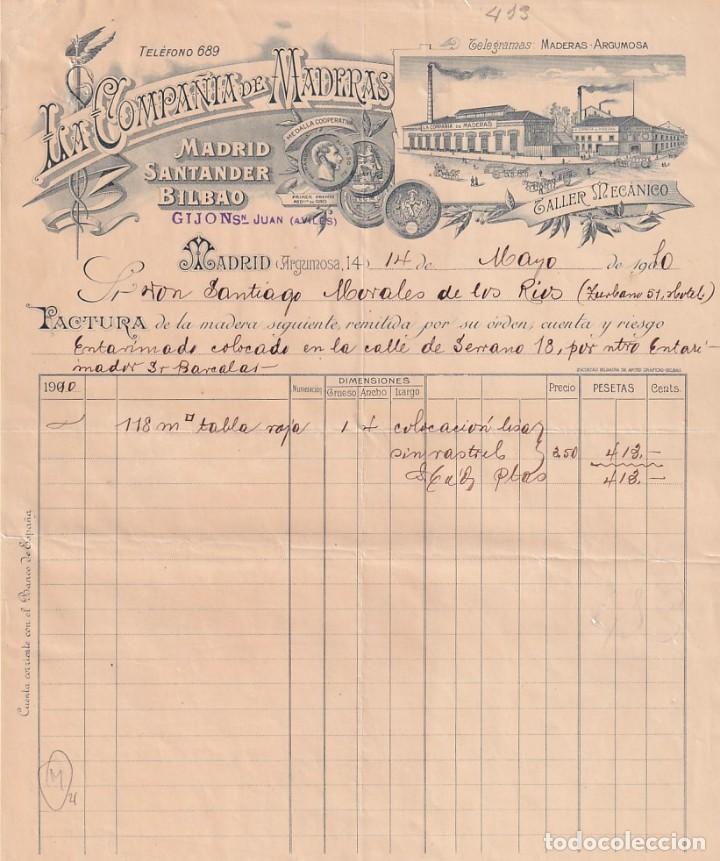 413
TELÉFONO 689
Telegramas: MADERAS-ARGUMOSA
LA COMPAÑIA DE MADERAS
LA COMPAÑIA DE MADERAS
MEDALLA COOPERATIVA
MADRID
SANTANDER
BILBAO
GIJON SN. JUAN (AVILÉS)
PRIMER PREMIO
TALLER MECÁNICO
MADRID (Argumosa, 14) 14 de Mayo de 1910
Sr Don Santiago Morales de los Rios (Zurbano 51, hotel)
FACTURA de la madera siguiente, remitida por su órden, cuenta y riesgo
Entarimado colocado en la calle de Serrano 18, por ntro Entari-
mador Sr Barcalas-
SOCIEDAD BILBAINA DE ARTES GRAFICAS-BILBAO
1910 Numeración DIMENSIONES Grueso Ancho Largo Precio PESETAS Cents.
118 m tabla roja 1 4 colocación lisa
sin rastrel 3,50 413.-
Ptas 413.-
Cuenta corriente con el Banco de España
M
todocoleccion.net